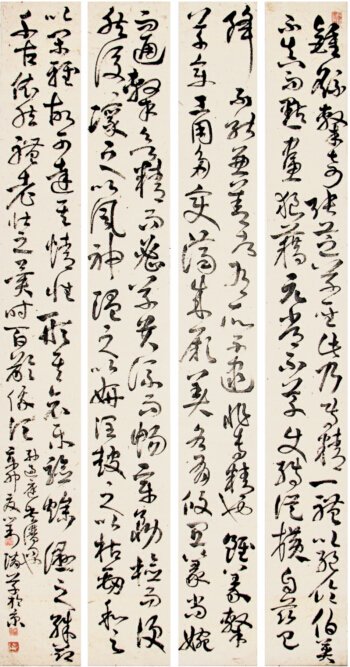 鍾繇隸奇張芝草聖此乃專精一體以致絕倫伯英
不真而點畫狼藉元常不草使轉縱橫自茲已
降不能兼善者有所不逮非專精也雖篆隸
草章工用多變濟成厥美各有攸宜篆尚婉
而通隸欲精而密草貴流而暢章務檢而便
然後凛之以風神溫之以妍潤鼓之以枯勁和之
以閑雅故可達其情性形其哀樂驗燥濕之殊節
千古依然體老壯之異時百齡俄頃
孫過庭書譜